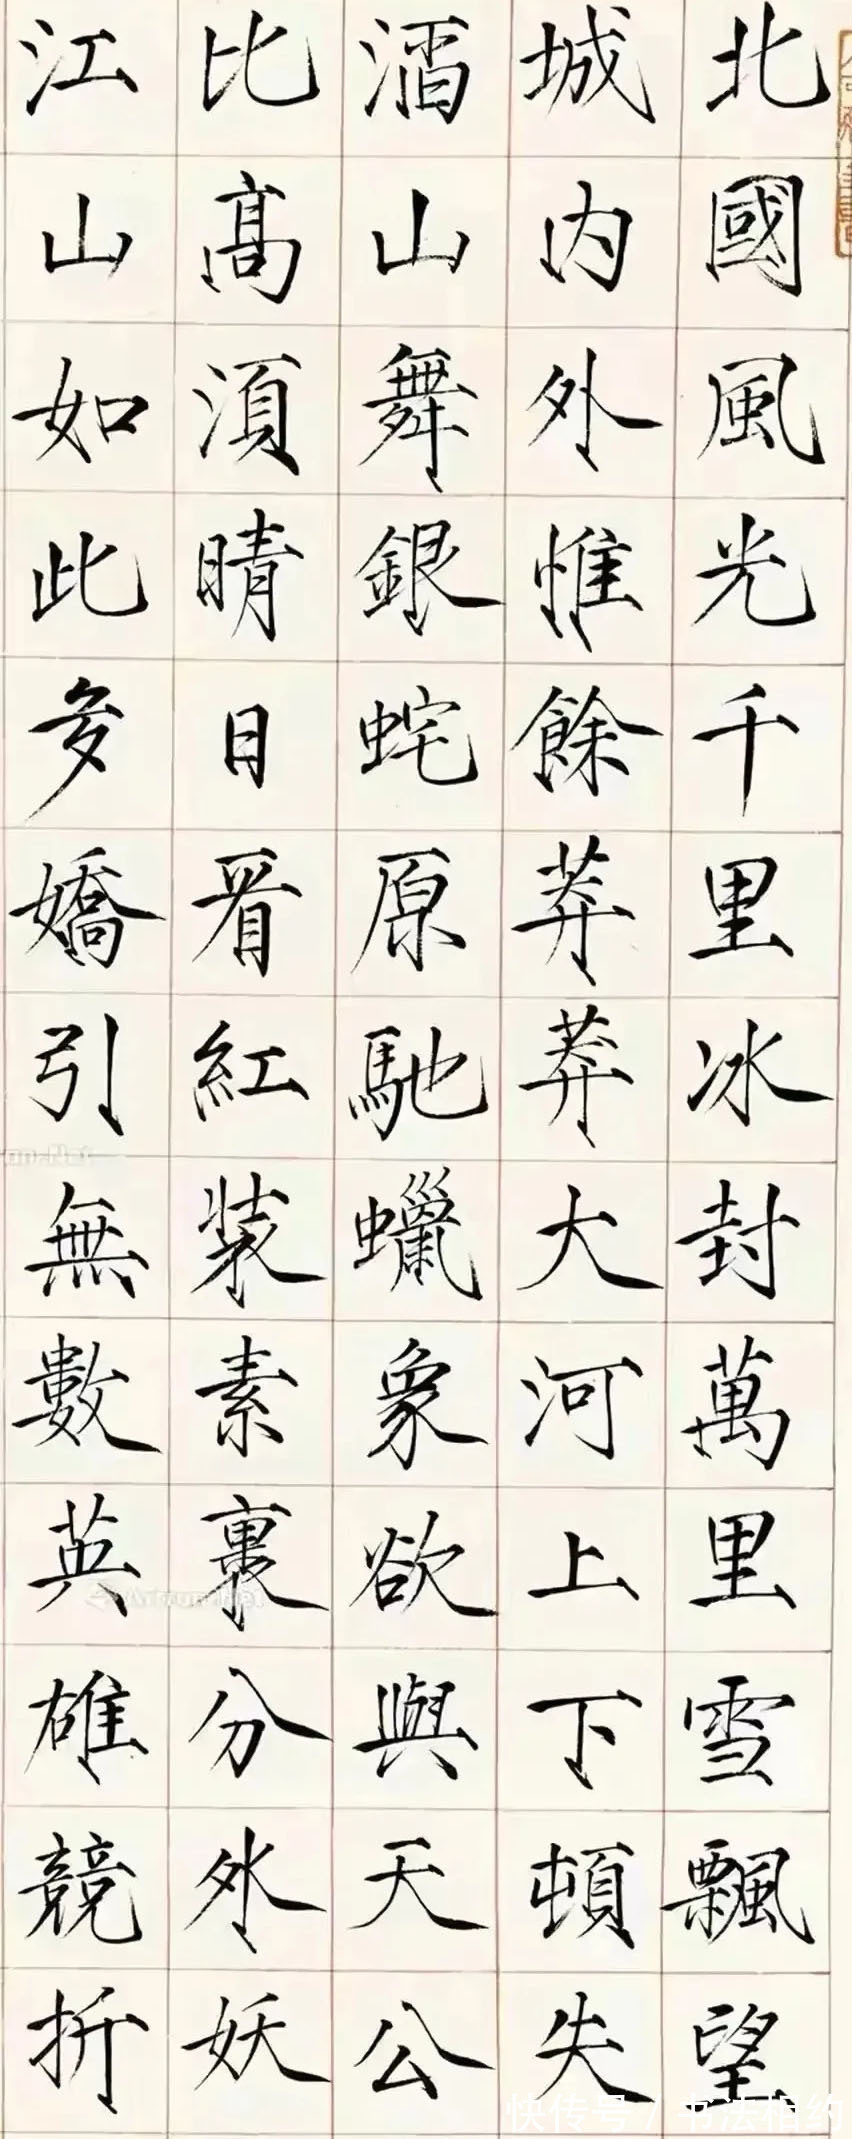 北國風光千里冰封萬里雪飄望
城内外惟餘莽莽大河上下頓失
滔山舞銀蛇原馳蠟象欲與天公
比髙湏晴日看紅装素裹分外妖
江山如此多嬌引無數英雄競折
Artron.Net
快传号 / 书法相约